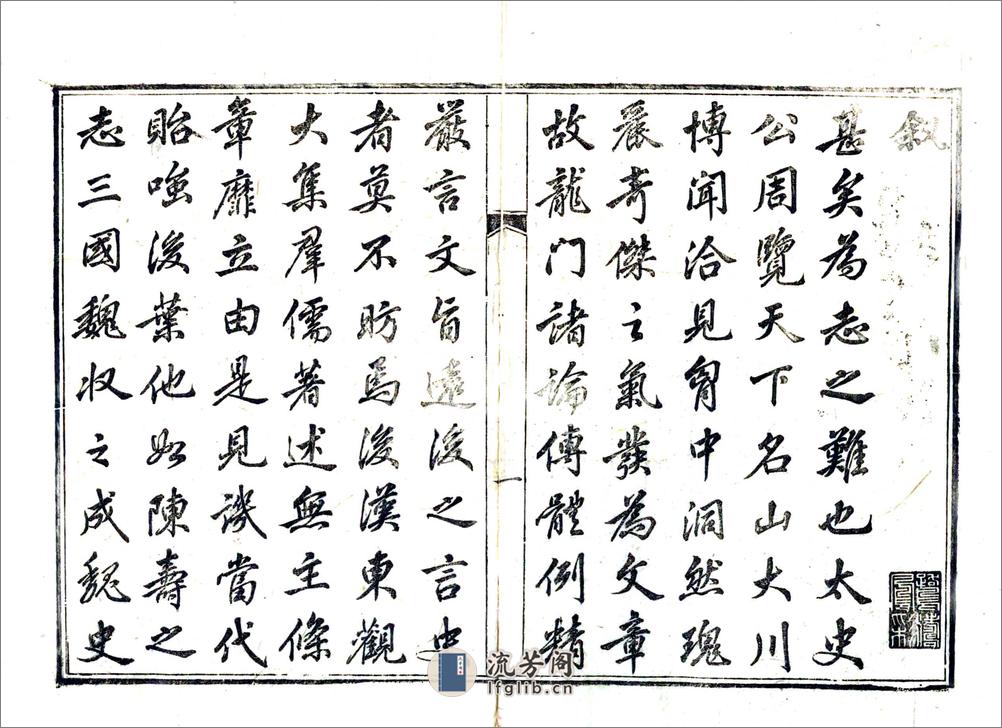 叙
甚矣為志之難也太史
公周覽天下名山大川
博聞洽見胷中洞然瑰
奇傑之氣發為文章
故龍门諸論傳體例精
嚴言文旨遠後之言史
者莫不昉焉後漢東觀
大集羣儒著述無主條
章靡立由是見譏當代
貽嗤後葉他如陳壽之
志三國魏收之成魏史
一
流芳阁
lfglib.cn